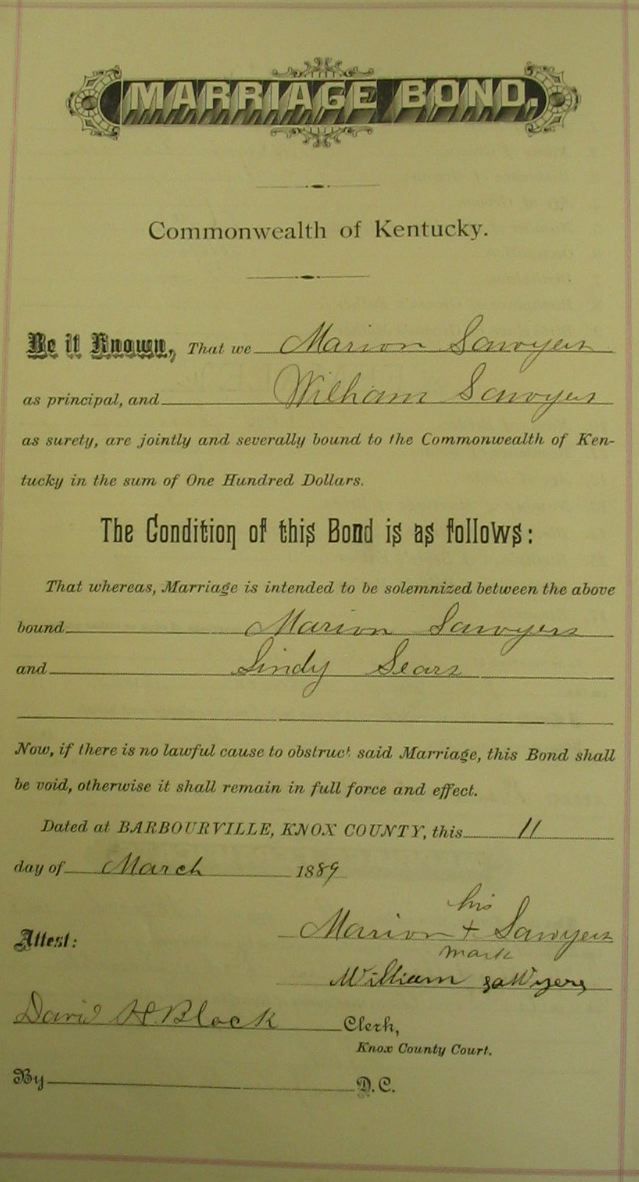 MARRIAGE BOND.
Commonwealth of Kentucky.
Be it Known, That we Marion Sawyers
as principal, and William Sawyers
as surety, are jointly and severally bound to the Commonwealth of Ken-
tucky in the sum of One Hundred Dollars.
The Condition of this Bond is as follows:
That whereas, Marriage is intended to be solemnized between the above
bound Marion Sawyers
and Lindy Sears
Now, if there is no lawful cause to obstruct said Marriage, this Bond shall
be void, otherwise it shall remain in full force and effect.
Dated at BARBOURVILLE, KNOX COUNTY, this 11
day of March 1889
his
Attest: Marion + Sawyers
mark
William saWyers
David H. Black Clerk,
Knox County Court.
By D.C.